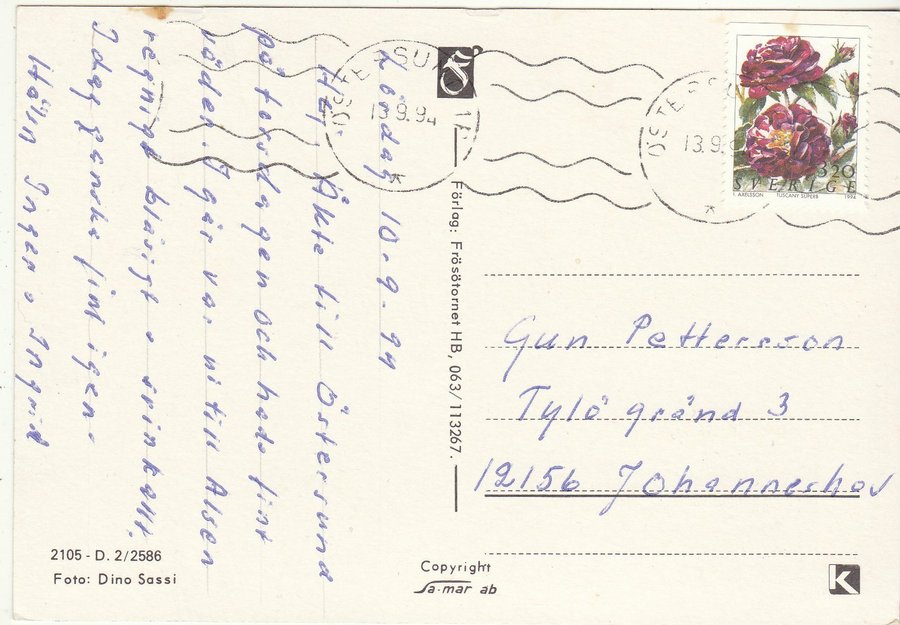 Lördag 10.9-94
Hej! Åkte till Östersund
på torsdagen och hade fint
väder. Igår var vi till Alsen
regnigt blåsigt o svinkallt.
Idag ganska fint igen.
Hälsn Inger o Ingrid
ÖSTERSUND 1
13.9.94
ÖSTERSU
13.9.9
320
SVERIGE
I. AXELSSON TUSCANY SUPERB 1994
Förlag: Frösötornet HB, 063/113267.
Gun Pettersson
Tylögränd 3
12156 Johanneshov
2105 - D. 2/2586
Foto: Dino Sassi
Copyright
Sa-mar ab
K